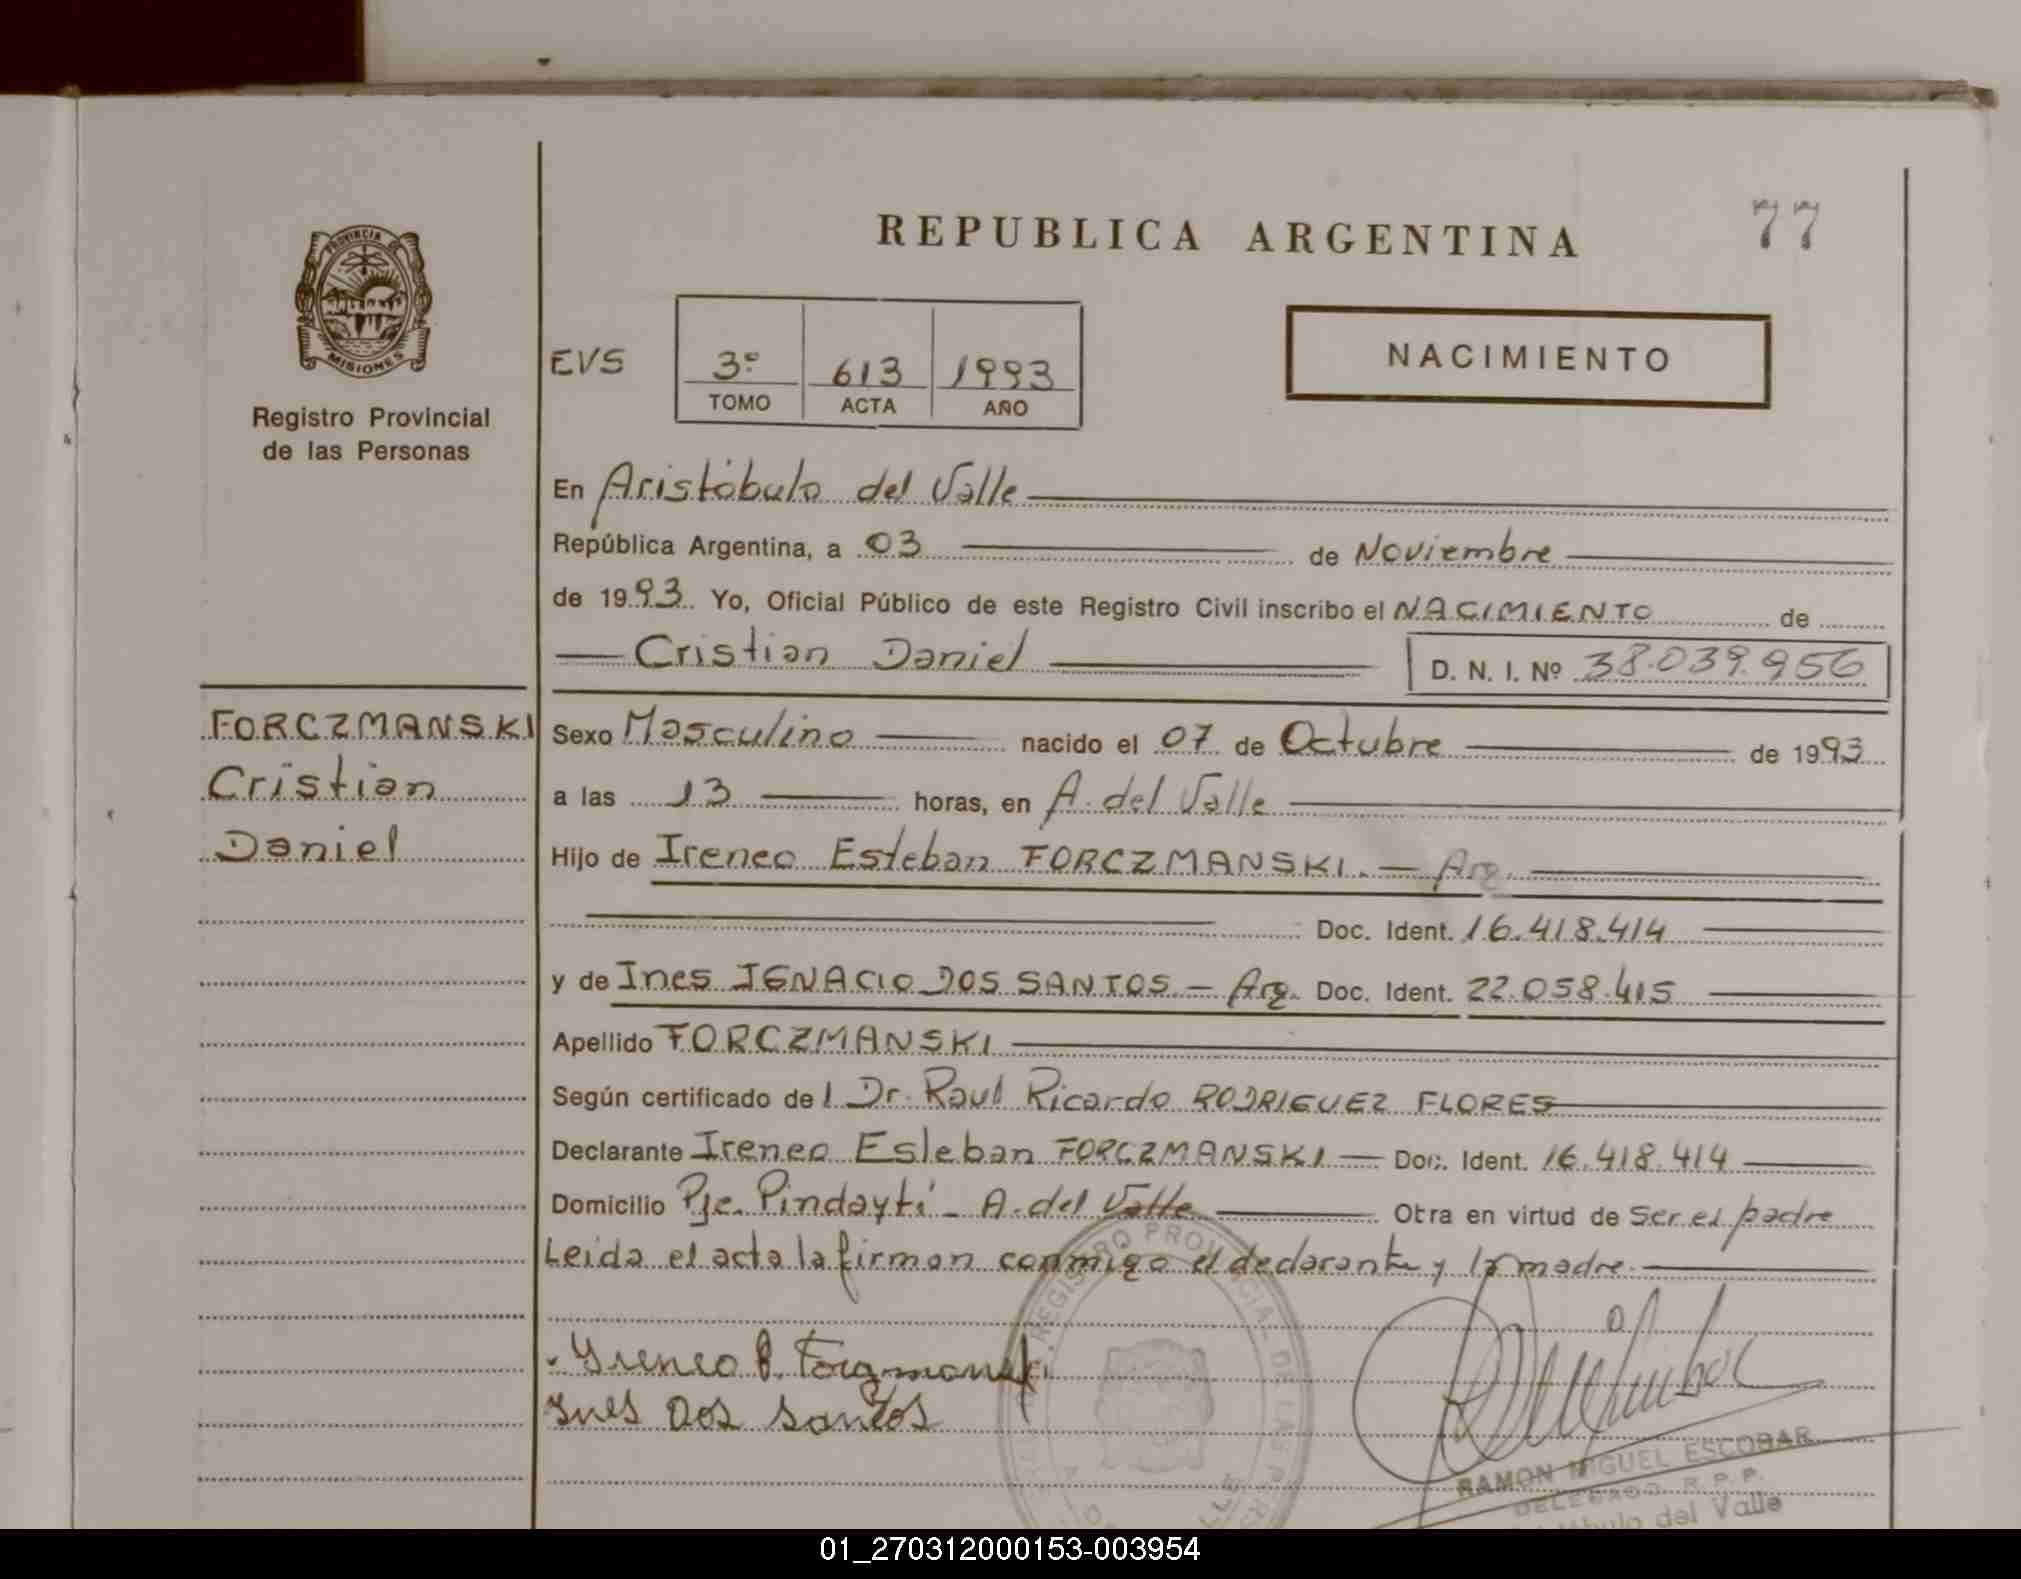 REPUBLICA ARGENTINA
77
PROVINCIA DE
MISIONES
Registro Provincial
de las Personas
EVS
3º 613 1993
TOMO ACTA AÑO
NACIMIENTO
En Aristóbulo del Valle
República Argentina, a 03 de Noviembre
de 1993. Yo, Oficial Público de este Registro Civil inscribo el NACIMIENTO de
Cristian Daniel
D. N. I. Nº 38.039.956
FORCZMANSKI
Cristian
Daniel
Sexo Masculino nacido el 07 de Octubre de 1993
a las 13 horas, en A. del Valle
Hijo de Ireneo Esteban FORCZMANSKI. — Arg.
Doc. Ident. 16.418.414
y de Ines IGNACIO DOS SANTOS — Arg. Doc. Ident. 22.058.415
Apellido FORCZMANSKI
Según certificado del Dr. Raul Ricardo RODRIGUEZ FLORES
Declarante Ireneo Esteban FORCZMANSKI — Doc. Ident. 16.418.414
Domicilio Pje. Pindaytí - A. del Valle Otra en virtud de ser el padre
Leida el acta la firman conmigo el declarante y la madre.
Ireneo
Ines Dos Santos
REGISTRO PROVINCIAL DE LAS
RAMON MIGUEL ESCOBAR
DELEGADO R. P. P.
del Valle
01_270312000153-003954